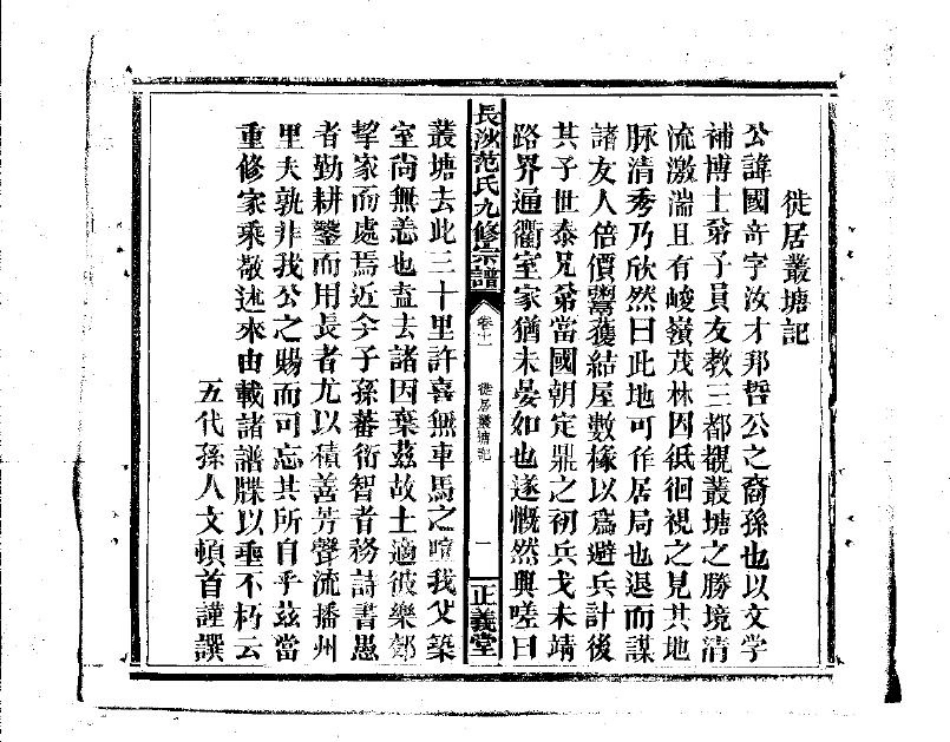 徙居叢塘記
公諱國許字汝才邦哲公之裔孫也以文学
補博士弟子員友教三都觀叢塘之勝境清
流激湍且有峻嶺茂林因低徊視之見其地
脉清秀乃欣然曰此地可作居局也退而謀
諸友人倍價鬻獲結屋數椽以爲避兵計後
其子世泰兄弟當國朝定鼎之初兵戈未靖
路界通衢室家猶未晏如也遂慨然興嗟曰
長沙范氏九修宗譜
卷十一
徙居叢塘記
一
正義堂
叢塘去此三十里許喜無車馬之喧我父築
室尚無恙也盍去諸因棄茲故土適彼樂郊
挈家而處焉近今子孫蕃衍智者務詩書愚
者勤耕鑿而用長者尤以積善芳聲流播州
里夫孰非我公之賜而可忘其所自乎茲當
重修家乘敬述來由載諸譜牒以垂不朽云
五代孫人文頓首謹譔